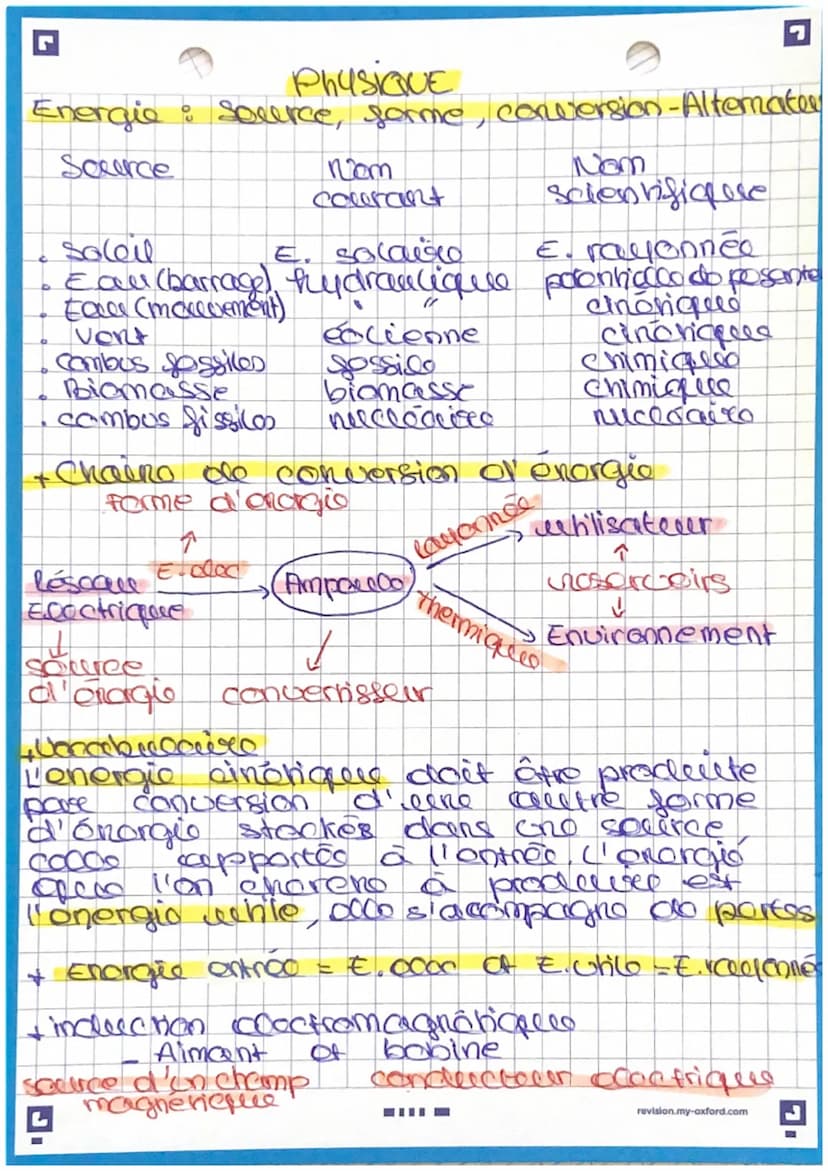 Physique
Energie : source, forme, conversion - Alternateu
Source Nom Nom
courant scientifique
. Soleil E. solaire E. rayonnée
. Eau (barrage) hydraulique potentielle de pesante
. Eau (mouvement) " cinétique
. Vent éolienne cinétique
. combus fossiles fossile chimique
. Biomasse biomasse chimique
. combus fissiles nucléaire nucléaire
+ Chaine de conversion d'énergie
forme d'énergie
rayonnée utilisateur
E. elec
Réseau Ampoule réservoirs
Electrique thermique Environnement
source
d'énergie convertisseur
+ Vocabulaire
L'energie cinétique doit être produite
par conversion d'une autre forme
d'énergie stockés dans une source
celle apportée à l'entrée. L'énergie
que l'on à produire est
l'energie utile, elle s'acompagne de pertes
+ Energie entrée = E. elec et E. utile = E. rayonnée
+ induction electromagnétique
- Aimant et bobine
source d'un champ conducteur electrique
magnétique
revision.my-oxford.com